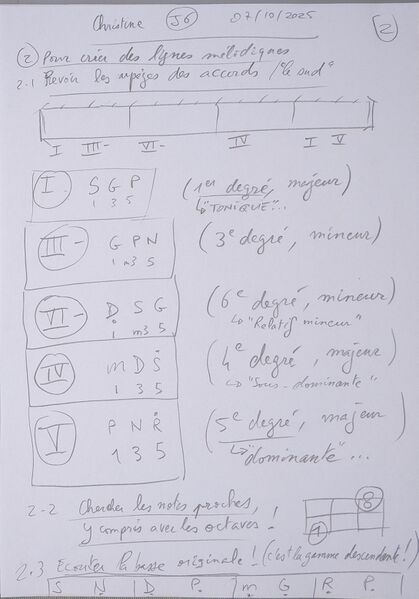 Christine J6 07/10/2025 2
② Pour créer des lignes mélodiques
2.1 Revoir les arpèges des accords / "le sud"
I III- VI- IV I V
I S G P (1er degré, majeur)
1 3 5 ↳ "TONIQUE"...
III- G P N (3e degré, mineur)
1 m3 5
VI- D S G (6e degré, mineur)
1 m3 5 ↳ "Relatif mineur"
IV m D S (4e degré, majeur)
1 3 5 ↳ "Sous-dominante"
V P N R (5e degré, majeur
1 3 5 ↳ "dominante"...
2-2 Chercher les notes proches, 8
y compris avec les octaves ! 1
2.3 Ecouter la basse originale ! (c'est la gamme descendante !)
S N D P m G R P